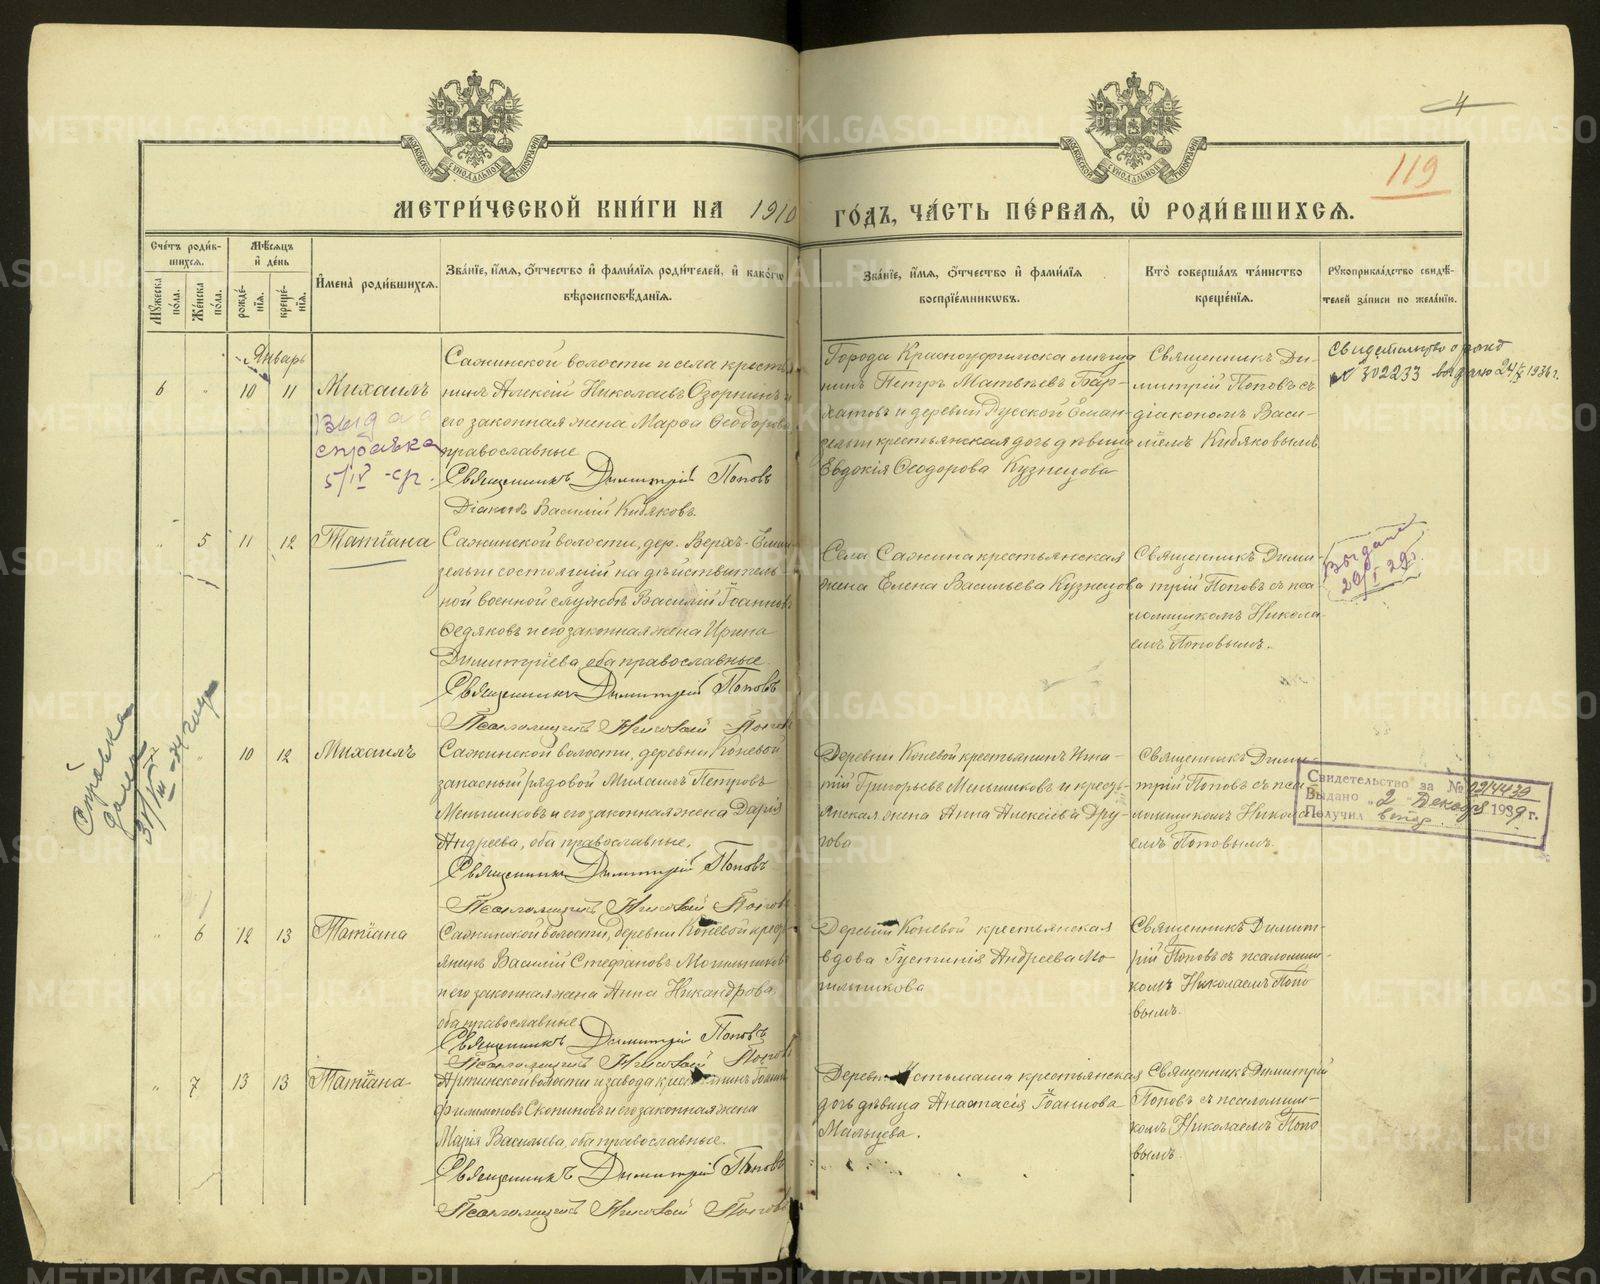 4
119
МЕТРИ́ЧЕСКОЙ КНИ́ГИ НА 1910 ГО́ДЪ, ЧА́СТЬ ПЕ́РВАѦ, Ѡ҆ РОДИ́ВШИХСѦ.
Сче́тъ роди́в-
шихсѧ.
Мѹжеска по́ла.
Же́нска по́ла.
Мѣ́сѧцъ и҆ де́нь
рожде́-
нїѧ.
креще́-
нїѧ.
И҆мена̀ роди́вшихсѧ.
Зва́нїе, и҆́мѧ, ѻ҆́тчество и҆ фами́лїѧ роди́телей, и҆ како́гѡ
вѣроисповѣ́данїѧ.
Зва́нїе, и҆́мѧ, ѻ҆́тчество и҆ фами́лїѧ
воспрїе́мникѡвъ.
Кто̀ соверша́лъ та́инство
креще́нїѧ.
Рѹкоприкла́дство свидѣ́-
телей за́писи по жела́нїю.
Январь
6 " 10 11 Михаилъ
Сажинской волости и села кресть-
нинъ Алексій Николаевъ Озорнинъ и
его законная жена Марѳа Ѳеодорова
православные
Священникъ Димитрій Поповъ
Діаконъ Василій Кибяковъ.
Города Красноуфимска мѣща
нинъ Петръ Матвѣевъ Бар-
хатовъ и деревни Русской Еман-
зельги крестьянская дочь дѣвица
Евдокія Ѳеодорова Кузнецова
Священникъ Ди-
митрій Поповъ съ
діакономъ Васи-
ліемъ Кибяковымъ.
Свидетельство о рожд
№ 302233 выдано 24/X 1936 г.
Выдана
справка
5/IV -ср.
" 5 11 12 Татіана
Сажинской волости, дер. Верхъ-Еман
зельги состоящій на дѣйствитель-
ной военной службѣ Василій Іоанновъ
Ѳедяковъ и его законная жена Ирина
Димитріева, оба православные.
Священникъ Димитрій Поповъ
Псаломщикъ Николай Поповъ
Села Сажина крестьянская
жена Елена Васильева Кузнецова
Священникъ Дими-
трій Поповъ съ пса-
ломщикомъ Никола-
емъ Поповымъ.
Выдана
20/I 29 г.
" 10 12 Михаилъ
Сажинской волости, деревни Коневой
запасный рядовой Михаилъ Петровъ
Меньшиковъ и его законная жена Дарія
Андреева, оба православные.
Священникъ Димитрій Поповъ
Псаломщикъ Николай Поповъ
Деревни Коневой крестьянинъ Игна-
тій Григорьевъ Меньшиковъ и кресть-
янская жена Анна Алексіева Дру
гова
Священникъ Дими
трій Поповъ съ пса
ломщикомъ Никола
емъ Поповымъ.
Свидетельство за №
Выдано " 2 " Декабря 1939 г.
Получил
Справка
дана
" 6 12 13 Татіана
Сажинской волости, деревни Коневой крест-
янинъ Василій Стефановъ Мотыльниковъ
и его законная жена Анна Никандрова,
оба православные.
Священникъ Димитрій Поповъ
Псаломщикъ Николай Поповъ
Деревни Коневой крестьянская
вдова Іустинія Андреева Мо-
тыльникова
Священникъ Димит-
рій Поповъ съ псаломщи-
комъ Николаемъ Попо
вымъ.
" 7 13 13 Татіана
Артинской волости и завода крестьянинъ Іоаннъ
Филимоновъ Скопиновъ и его законная жена
Марія Васильева, оба православные.
Священникъ Димитрій Поповъ
Псаломщикъ Николай Поповъ
крестьянская
дочь дѣвица Анастасія Іоаннова
Мальцева.
Священникъ Димитрій
Поповъ съ псаломщи-
комъ Николаемъ Попо
вымъ.
METRIKI.GASO-URAL.RU